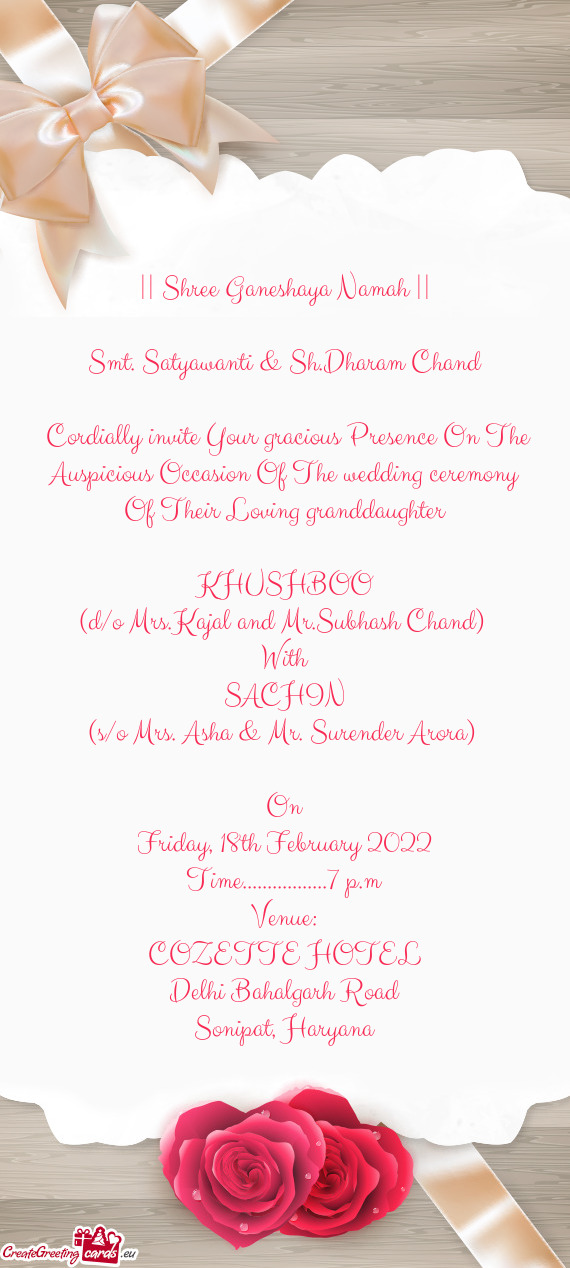 || Shree Ganeshaya Namah ||
Smt. Satyawanti & Sh.Dharam Chand
Cordially invite Your gracious Presence On The
Auspicious Occasion Of The wedding ceremony
Of Their Loving granddaughter
KHUSHBOO
(d/o Mrs.Kajal and Mr.Subhash Chand)
With
SACHIN
(s/o Mrs. Asha & Mr. Surender Arora)
On
Friday, 18th February 2022
Time.................7 p.m
Venue:
COZETTE HOTEL
Delhi Bahalgarh Road
Sonipat, Haryana
CreateGreeting cards .eu